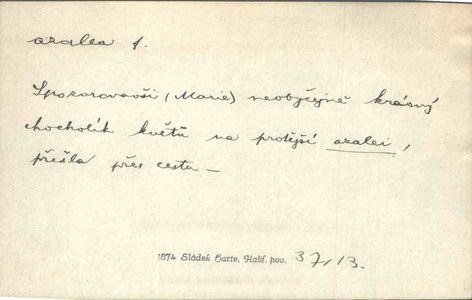 azalea f.
Spozorovavši (Marie) neobyčejně krásný
chocholík květů na protější azalei,
přešla přes cestu —
1874 Sládek Harte, Kalif. pov. 37/13.